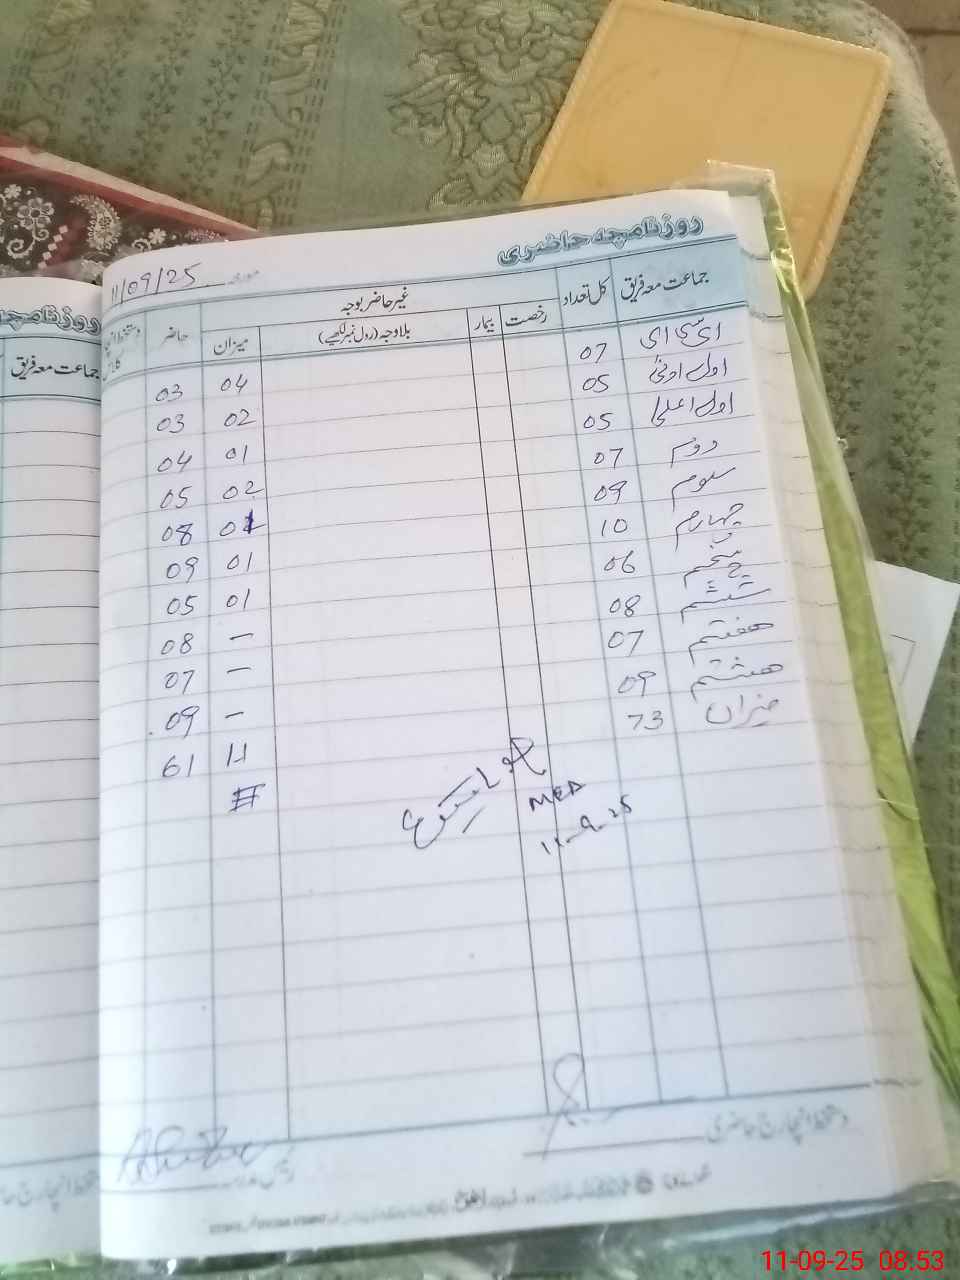 روزنامچہ حاضری
مورخہ 11/09/25
جماعت معہ فریق کل تعداد غیر حاضر بوجہ حاضر
رخصت بیمار بلاوجہ (رول نمبر لکھیے) میزان
ای سی ای 07 04 03
اول ادنیٰ 05 02 03
اول اعلیٰ 05 01 04
دوم 07 02 05
سوم 09 01 08
چہارم 10 01 09
پنجم 06 01 05
ششم 08 — 08
ہفتم 07 — 07
ہشتم 09 — 09
میزان 73 11 61
MEA
11-9-25
دستخط انچارج حاضری
روزنامچہ
جماعت معہ فریق
11-09-25 08.53